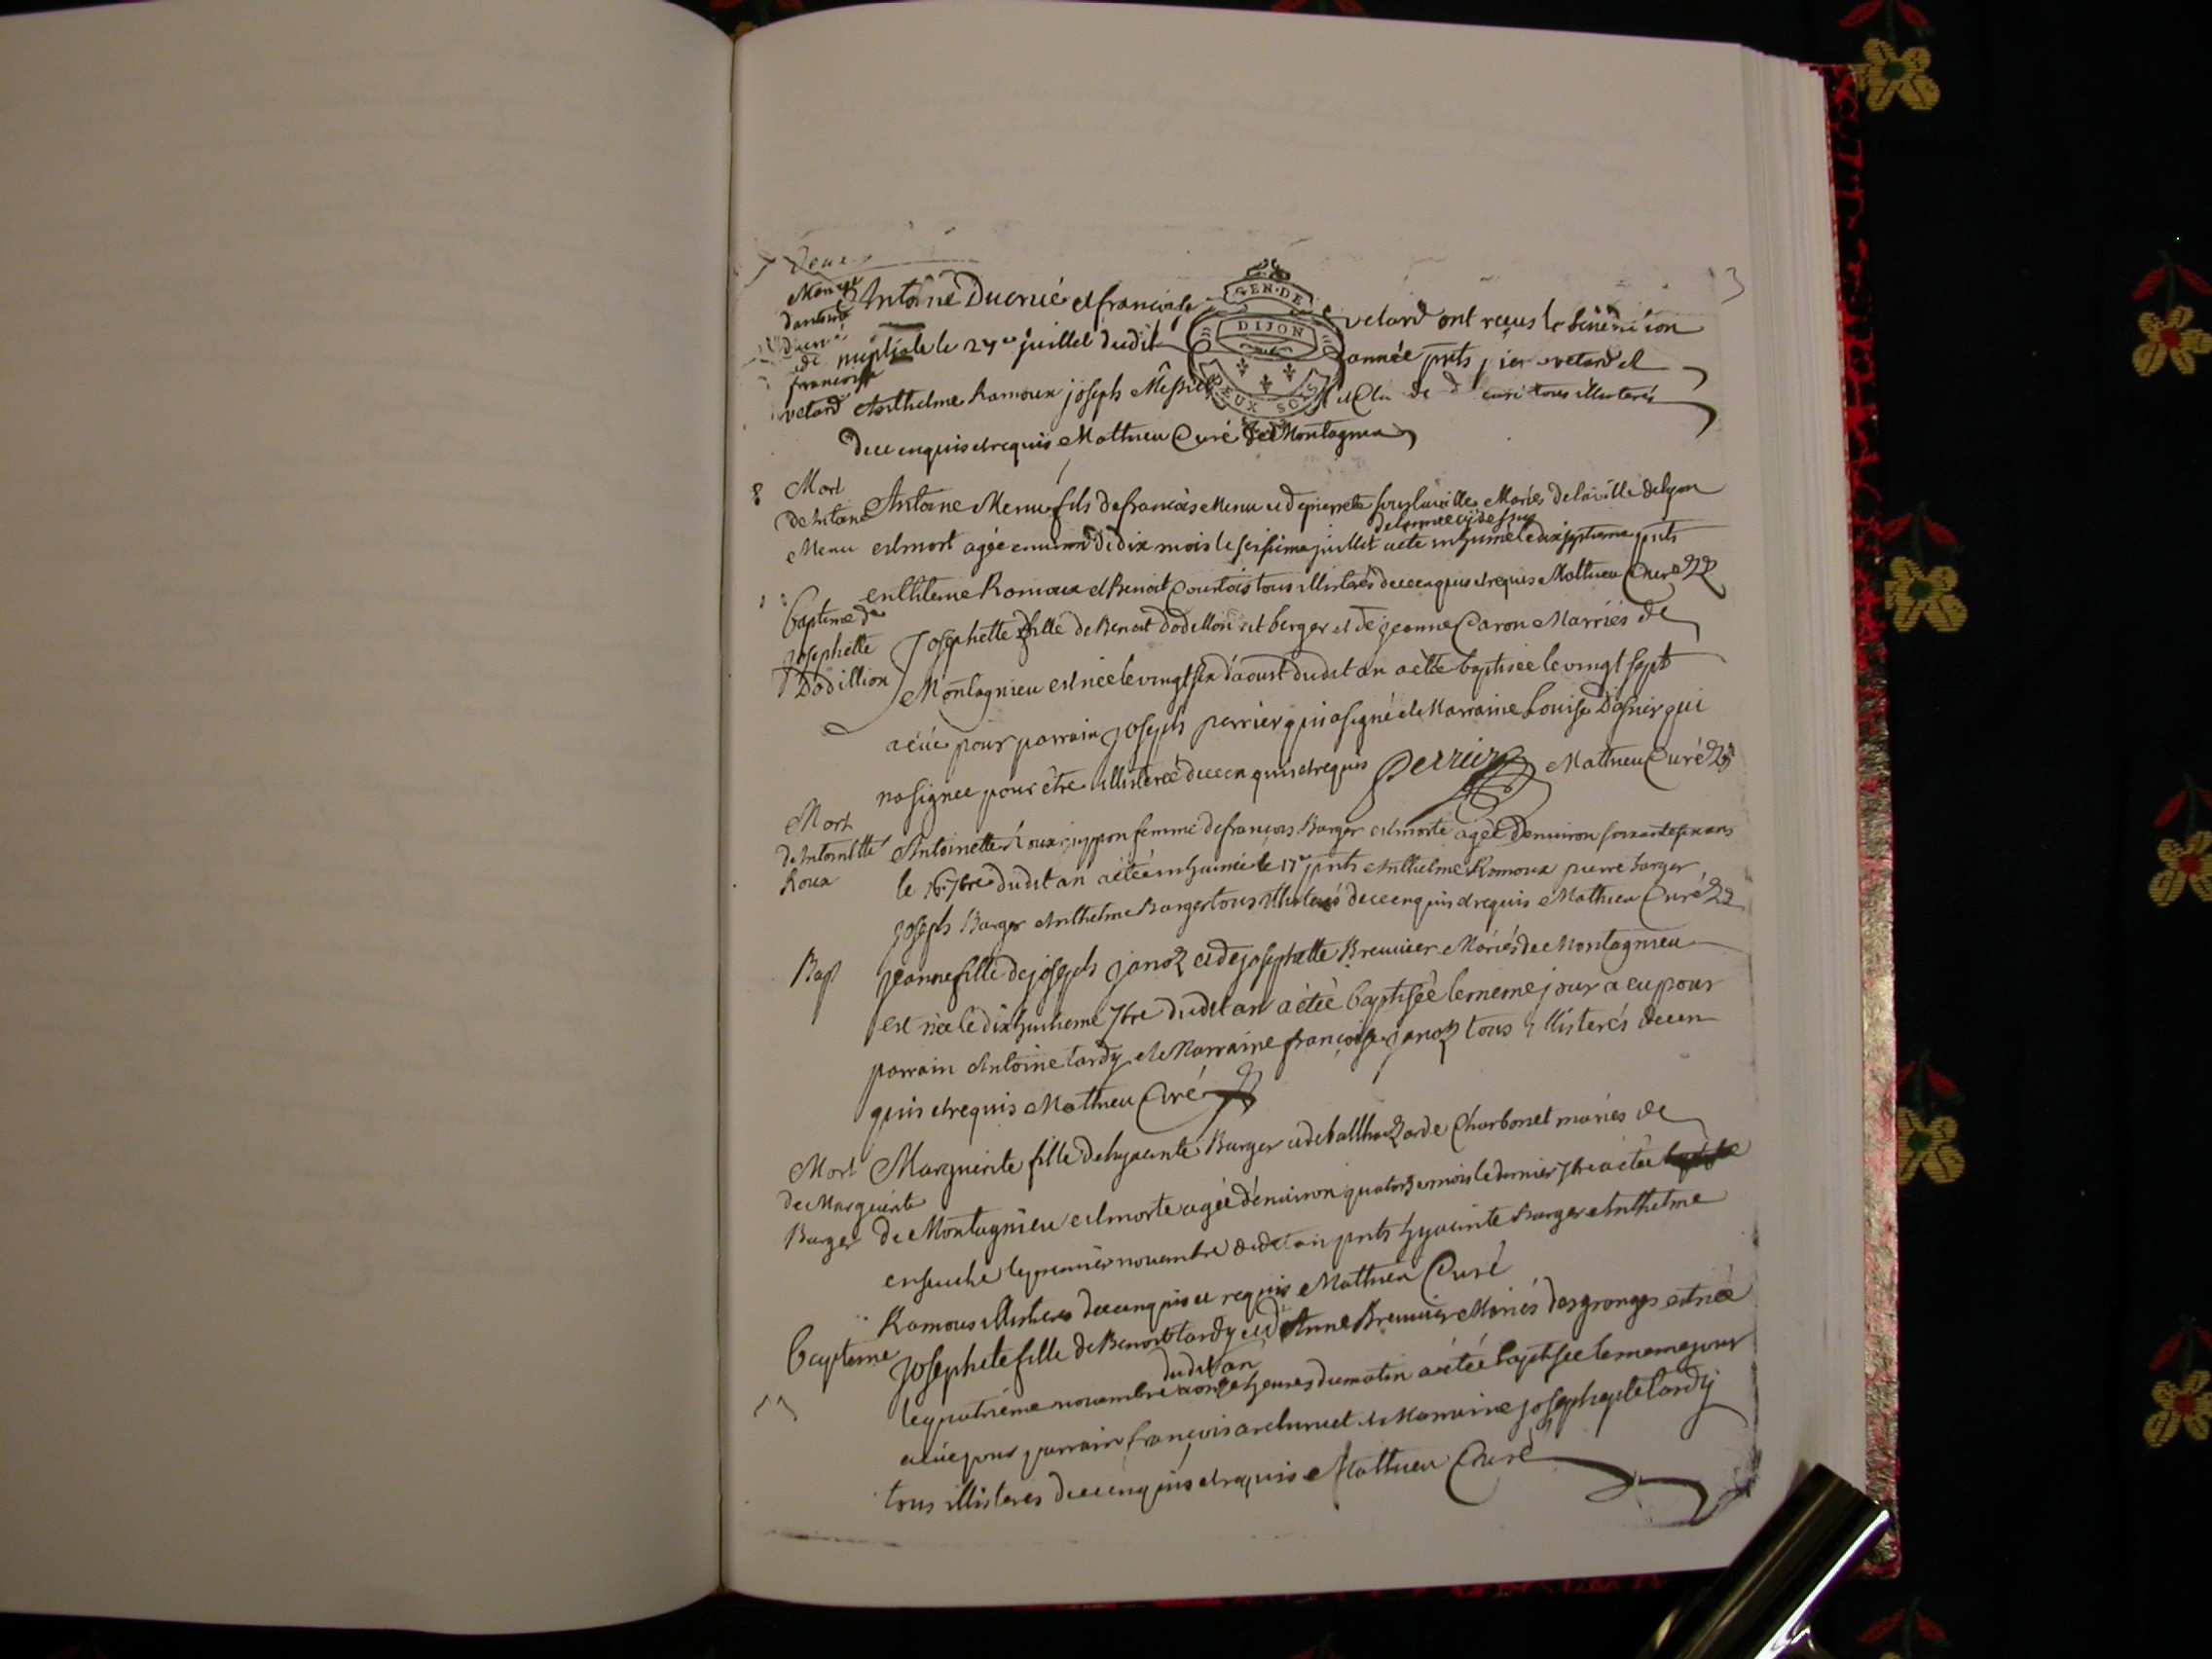 Deux
3
Mariage
d'antoine
ducrué
et de
françoise
velard
Antoine Ducrué et françoise
velard ont reçus la bénédiction
nuptiale le 27e juillet dudit
année pnts
velard et
Anthelme Ramoux joseph
curé tous illisterés
de ce enquis et requis Mathieu Curé de Montagnieu
GEN. DE
DIJON
DEUX SOLS
8
Mort
de Antoine
Menu
Antoine Menu fils de françois Menu et de pierrette Mariés de la ville de Lyon
de l'année cÿ dessus
est mort agée environ de dix mois le seisième juillet a ete inhumé le dix septieme pnts
enthleme Romoux et Benoit Courtois tous illisterés de ce enquis et requis Mathieu Curé
Bapteme de
Josephette
Dodillion
Josephette fille de Benoit dodillon dit berger et de jeanne Caron Marriés de
Montagnieu est née le vingt six d'aoust dudit an a été baptisée le vingt sept
a eüe pour parrain joseph perrier qui a signé et Marraine Louise qui
na signee pour être illisterée de ce enquis et requis Perrier Mathieu Curé
Mort
de Antoinette
Roux
Antoinette Roux femme de françois Barger est morte agée d'environ soixante six ans
le 16e 7bre dudit an a été inhumée le 17e pnts Anthelme Romoux pierre barger
joseph Barger Anthelme Barger tous illisterés de ce enquis et requis Mathieu Curé
Bap
jeanne fille de joseph janoz et de josephette Breuvier Mariés de Montagnieu
est née le dix huitieme 7bre dudit an a été baptisée le meme jour a eu pour
parrain Antoine tardy et Marraine françoise janoz tous illisterés de ce en
quis et requis Mathieu Curé
Mort
de Marguerite
Barger
Marguerite fille de hyacinte Barger et de balthazarde Charbonet mariés de
de Montagnieu est morte agée d'environ quatorze mois le dernier a été
le premier novembre dudit an pnts hyacinte Barger Anthelme
Ramoux illisteres de ce enquis et requis Mathieu Curé
Bapteme
Josephte fille de Benoit tardy et d'Anne Breuvier Mariés des granges est née
dudit an
le quatrième novembre a onze heures du matin a été baptisée le meme jour
a eüe pour parrain françois et Marraine josephte tardy
tous illisteres de ce enquis et requis Mathieu Curé